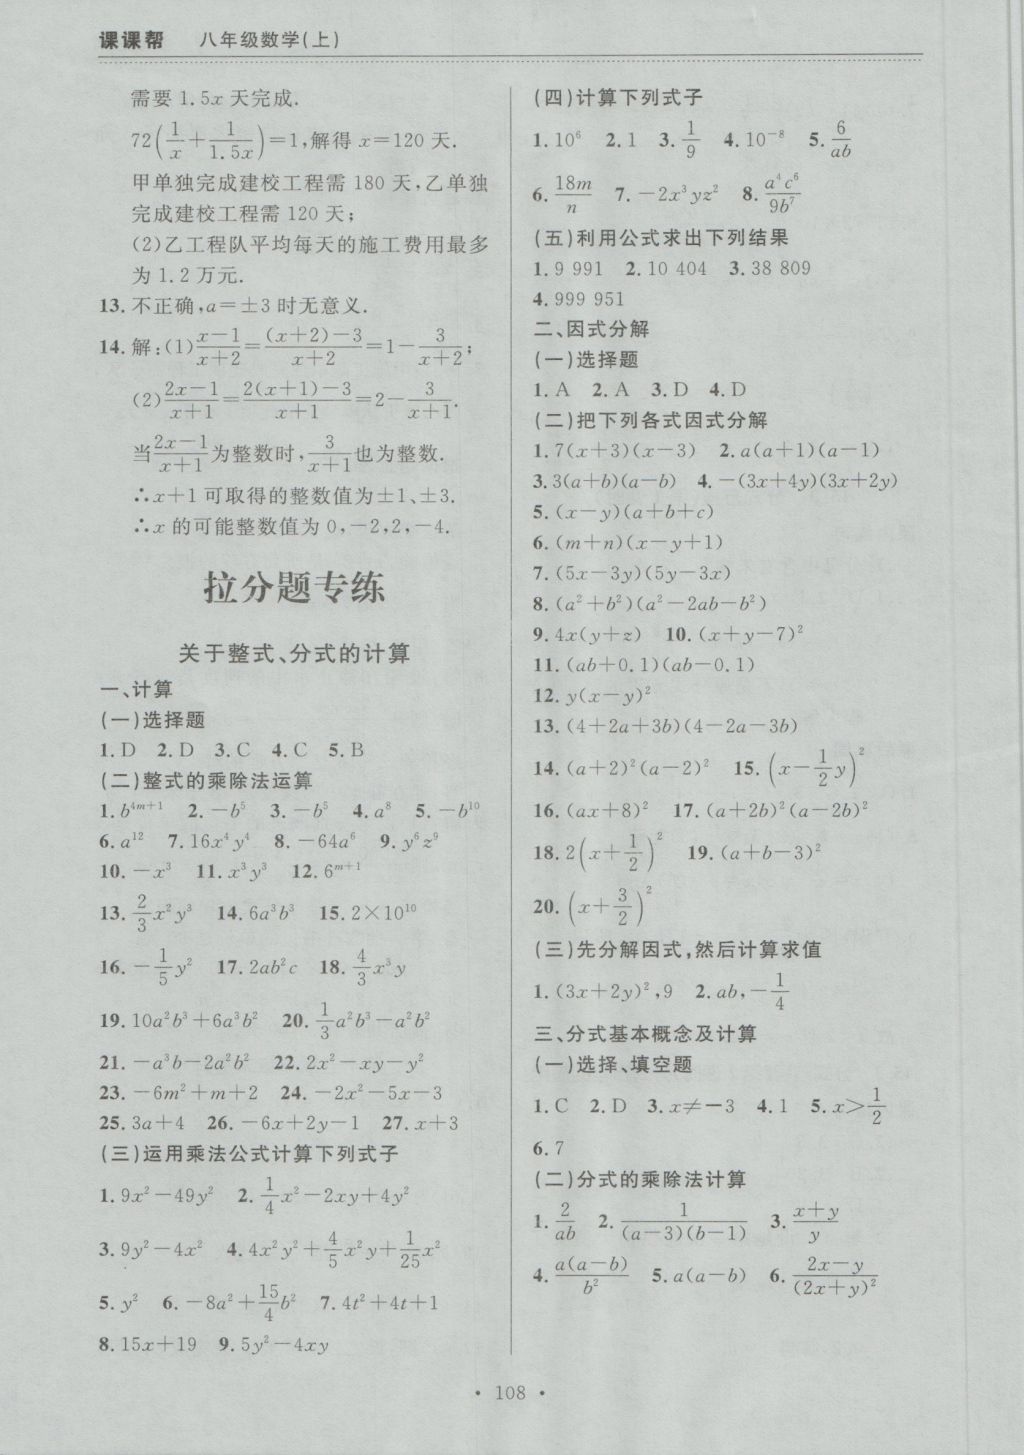 课课帮 八年级数学(上)
需要 1.5x 天完成.
72(1/x+1/1.5x)=1,解得 x=120 天.
甲单独完成建校工程需 180 天,乙单独
完成建校工程需 120 天;
(2)乙工程队平均每天的施工费用最多
为 1.2 万元.
13.不正确,a=±3 时无意义.
14.解:(1)(x-1)/(x+2)=((x+2)-3)/(x+2)=1-3/(x+2);
(2)(2x-1)/(x+1)=(2(x+1)-3)/(x+1)=2-3/(x+1).
当(2x-1)/(x+1)为整数时,3/(x+1)也为整数.
∴x+1 可取得的整数值为±1、±3.
∴x 的可能整数值为 0,-2,2,-4.
拉分题专练
关于整式、分式的计算
一、计算
(一)选择题
1.D 2.D 3.C 4.C 5.B
(二)整式的乘除法运算
1.b⁴ᵐ⁺¹ 2.-b⁵ 3.-b⁵ 4.a⁸ 5.-b¹⁰
6.a¹² 7.16x⁴y⁴ 8.-64a⁶ 9.y⁶z⁹
10.-x³ 11.x³y³ 12.6ᵐ⁺¹
13.2/3x²y³ 14.6a³b³ 15.2×10¹⁰
16.-1/5y² 17.2ab²c 18.4/3x³y
19.10a²b³+6a³b² 20.1/3a²b³-a²b²
21.-a³b-2a²b² 22.2x²-xy-y²
23.-6m²+m+2 24.-2x²-5x-3
25.3a+4 26.-6x+2y-1 27.x+3
(三)运用乘法公式计算下列式子
1.9x²-49y² 2.1/4x²-2xy+4y²
3.9y²-4x² 4.4x²y²+4/5x²y+1/25x²
5.y² 6.-8a²+15/4b² 7.4t²+4t+1
8.15x+19 9.5y²-4xy
(四)计算下列式子
1.10⁶ 2.1 3.1/9 4.10⁻⁸ 5.6/ab
6.18m/n 7.-2x³yz² 8.a⁴c⁶/9b⁷
(五)利用公式求出下列结果
1.9 991 2.10 404 3.38 809
4.999 951
二、因式分解
(一)选择题
1.A 2.A 3.D 4.D
(二)把下列各式因式分解
1.7(x+3)(x-3) 2.a(a+1)(a-1)
3.3(a+b)(a-b) 4.-(3x+4y)(3x+2y)
5.(x-y)(a+b+c)
6.(m+n)(x-y+1)
7.(5x-3y)(5y-3x)
8.(a²+b²)(a²-2ab-b²)
9.4x(y+z) 10.(x+y-7)²
11.(ab+0.1)(ab-0.1)
12.y(x-y)²
13.(4+2a+3b)(4-2a-3b)
14.(a+2)²(a-2)² 15.(x-1/2y)²
16.(ax+8)² 17.(a+2b)²(a-2b)²
18.2(x+1/2)² 19.(a+b-3)²
20.(x+3/2)²
(三)先分解因式,然后计算求值
1.(3x+2y)²,9 2.ab,-1/4
三、分式基本概念及计算
(一)选择、填空题
1.C 2.D 3.x≠-3 4.1 5.x>1/2
6.7
(二)分式的乘除法计算
1.2/ab 2.1/((a-3)(b-1)) 3.(x+y)/y
4.a(a-b)/b² 5.a(a-b) 6.(2x-y)/(2x+y)²
• 108 •